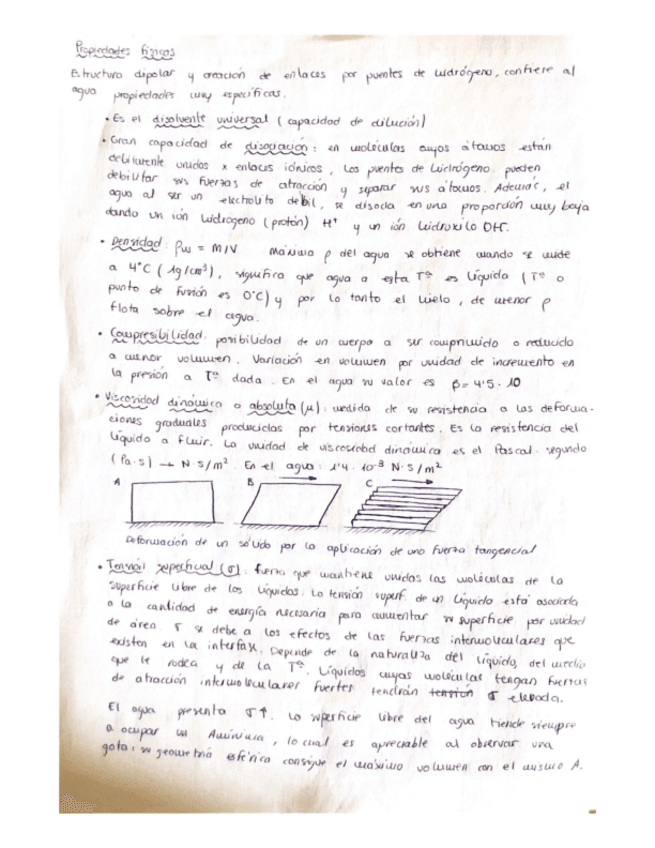 Propiedades físicas
Estructura dipolar y creación de enlaces por puentes de hidrógeno, confiere al
agua propiedades muy específicas.
• Es el disolvente universal (capacidad de dilución)
• Gran capacidad de disociación: en moléculas cuyos átomos están
debilmente unidos x enlaces iónicos, los puentes de hidrógeno pueden
debilitar sus fuerzas de atracción y separar sus átomos. Además, el
agua al ser un electrolito débil, se disocia en una proporción muy baja
dando un ión hidrógeno (protón) H⁺ y un ión hidroxilo OH⁻.
• Densidad: ρw = M/V Máxima ρ del agua se obtiene cuando se mide
a 4°C (1g/cm³), significa que agua a esta Tª es líquida (Tª o
punto de fusión es 0°C) y por lo tanto el hielo, de menor ρ
flota sobre el agua.
• Compresibilidad: posibilidad de un cuerpo a ser comprimido o reducido
a menor volumen. Variación en volumen por unidad de incremento en
la presión a Tª dada. En el agua su valor es β = 4'5 · 10
• Viscosidad dinámica o absoluta (μ): medida de su resistencia a las deforma-
ciones graduales producidas por tensiones cortantes. Es la resistencia del
líquido a fluir. La unidad de viscosidad dinámica es el Pascal · segundo
(Pa·s) → N·S/m². En el agua: 1'4 · 10⁻³ N·S/m²
A B C
Deformación de un sólido por la aplicación de una fuerza tangencial
• Tensión superficial (σ): fuerza que mantiene unidas las moléculas de la
superficie libre de los líquidos. La tensión superf. de un líquido está asociada
a la cantidad de energía necesaria para aumentar su superficie por unidad
de área. σ se debe a los efectos de las fuerzas intermoleculares que
existen en la interfase. Depende de la naturaleza del líquido, del medio
que le rodea y de la Tª. Líquidos cuyas moléculas tengan fuerzas
de atracción intermoleculares fuertes tendrán tensión σ elevada.
El agua presenta σ↑. La superficie libre del agua tiende siempre
a ocupar un A mínima, lo cual es apreciable al observar una
gota: su geometría esférica consigue el máximo volumen con el mismo A.